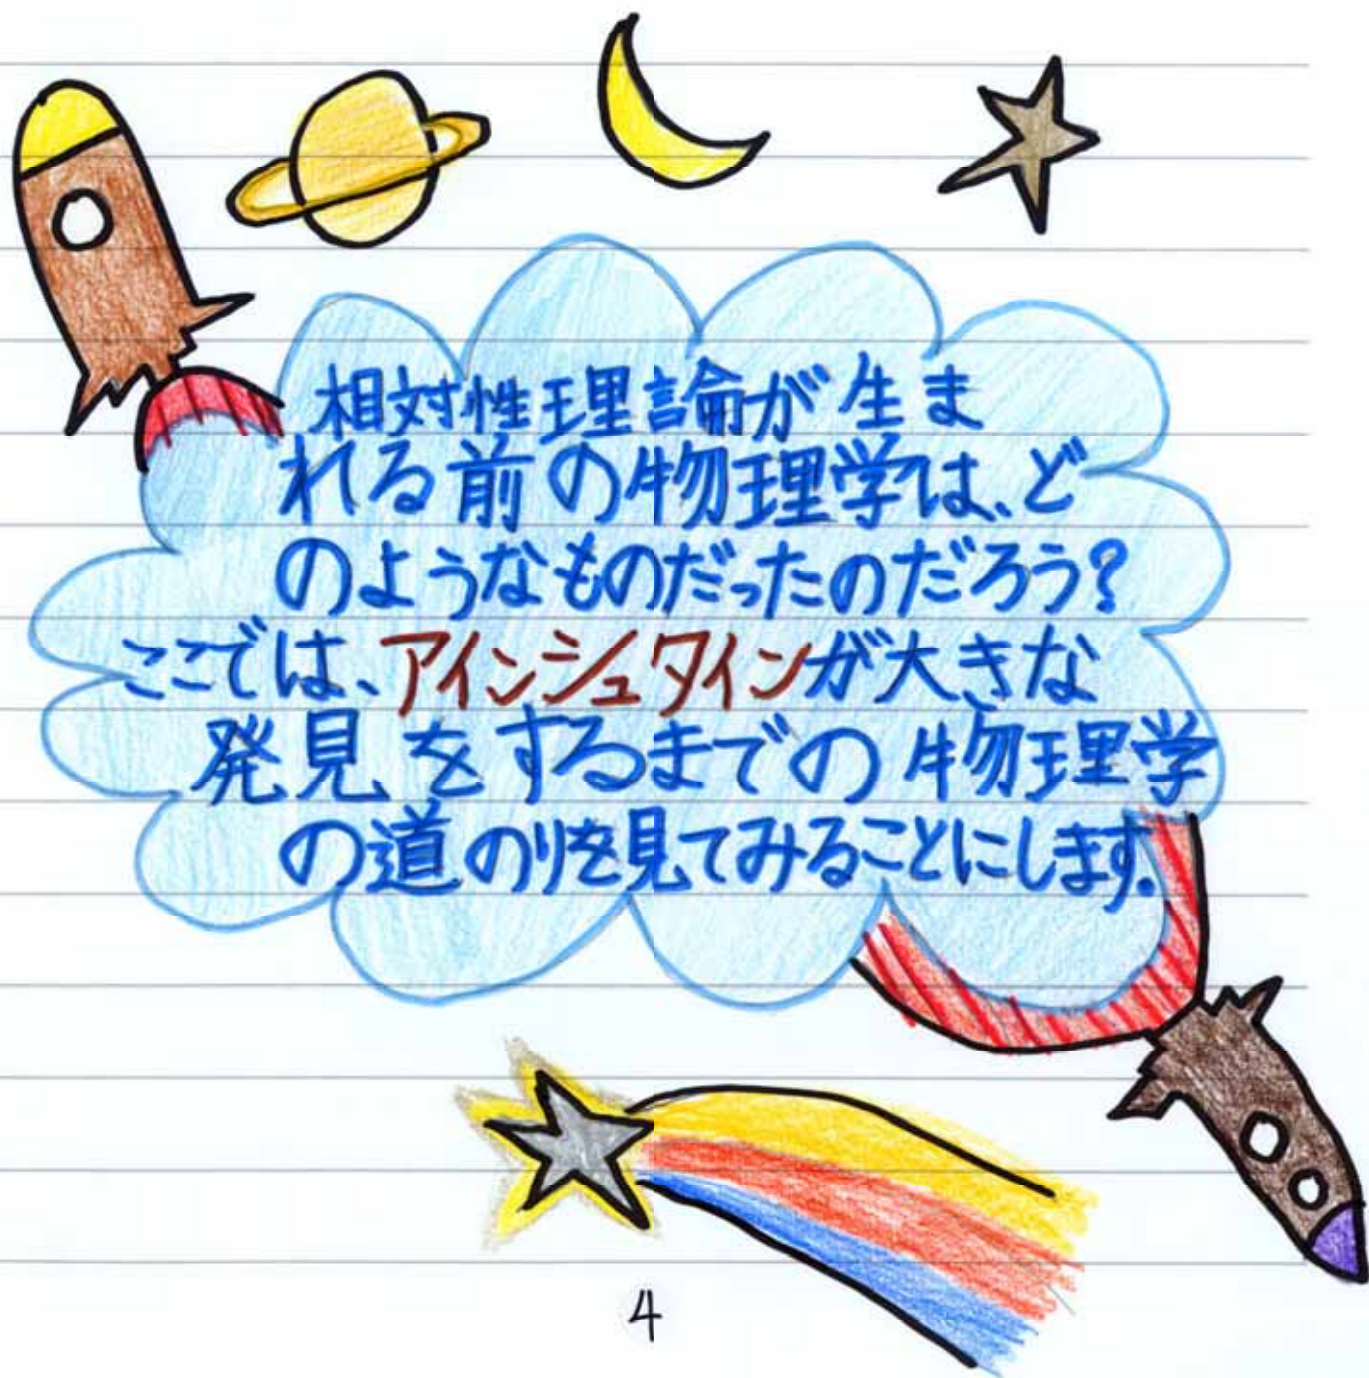 相対性理論が生ま
れる前の物理学は、ど
のようなものだったのだろう?
ここでは、アインシュタインが大きな
発見をするまでの物理学
の道のりを見てみることにします。
4